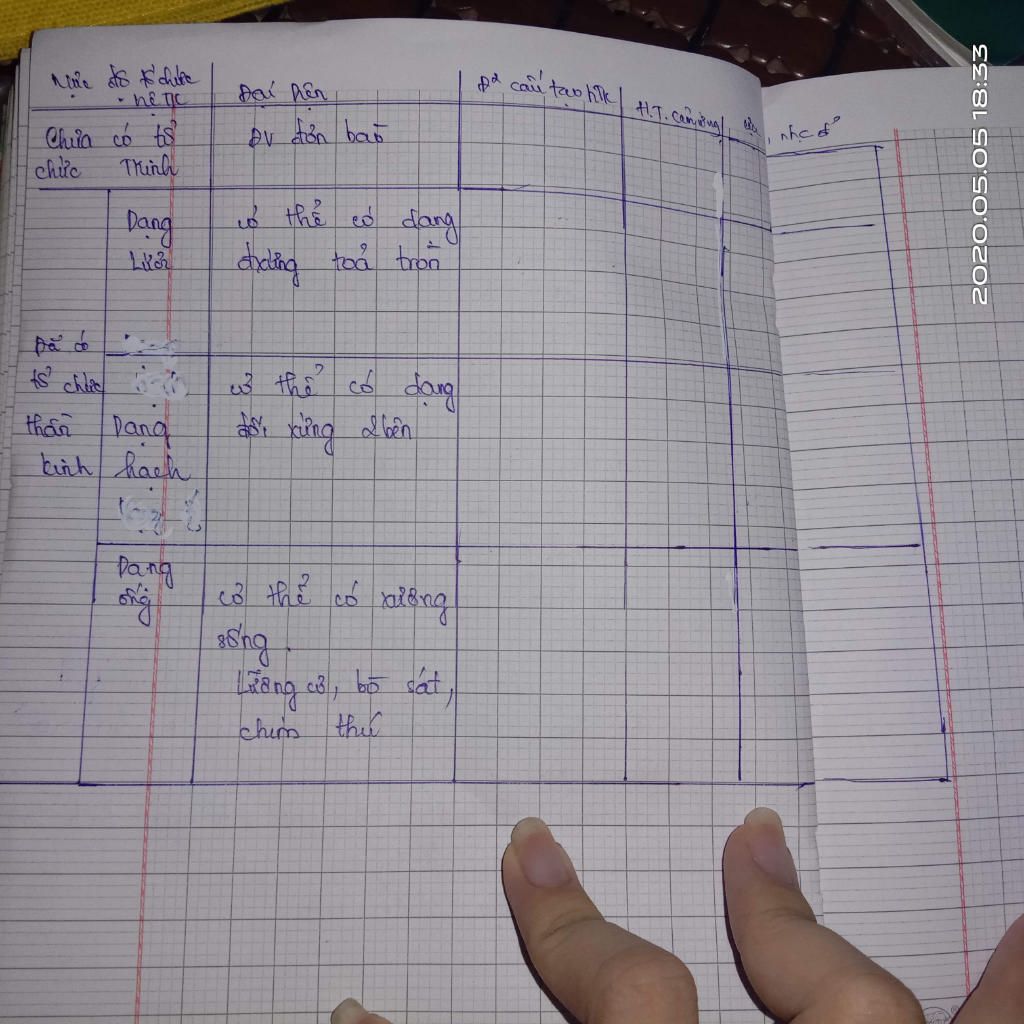 Mức độ tổ chức
hệ TK
Đại diện
Đ² cấu tạo HTK
H.T. cảm ứng
, nhc đ²
Chưa có tổ
chức TKinh
ĐV đơn bào
Dạng
Lưới
cơ thể có dạng
đxứng toả tròn
Đã có
tổ chức
thần
kinh
Dạng
hạch
cơ thể có dạng
đối xứng 2 bên
Dạng
ống
cơ thể có xương
sống.
Lưỡng cư, bò sát,
chim thú
2020.05.05 18:33